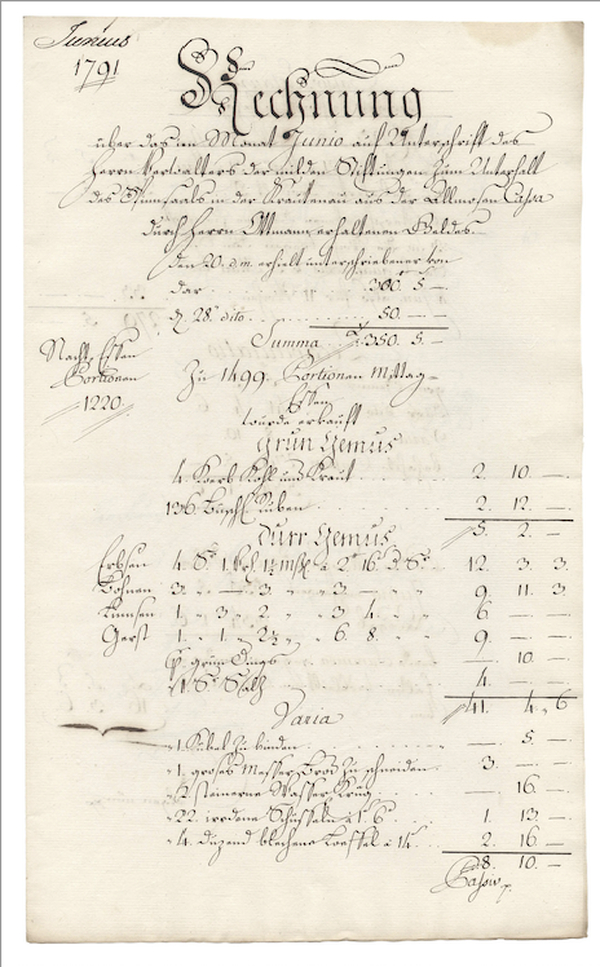 Junius
1791
Rechnung
über das im Monat Junio auf Unterschrift des
Herrn Verwalters der milden Stiftungen zum Unterhalt
des in der Krautenau aus der Allmosen Cassa
durch Herrn Ottmann erhaltenen Geldes.
den 20. d.m. erhielt unterschriebener von
dar 300. 5 —
d. 28. dito 50. — —
Summa 350. 5. —
Nacht Essen
Portionen
1220.
Zu 1499. Portionen Mittag-
Essen
wurde erkauft
Grün Gemüs
4. Koerb Kohl und Kraut 2. 10. —
136. Büschl. Rüben 2. 12. —
5. 2. —
Dürr Gemüs
Erbsen 4. S. 1. 1½ a 2 16. d. S. 12. 3. 3.
Bohnen 3. — 3. 3. — 9. 11. 3.
Linnsen 1. 3. 2. 3. 4. 6. — —
Gerst 1. 1. 2½ 6. 8. 9. — —
p. grün Dings — 10. —
1. S. Saltz 4. — —
41. 4. 6
Varia
1. Kübel zu binden — 5. —
1. groses Messer Brod zu schneiden 3. — —
2 steinerne Wasser Krüg — 16. —
22. irrdene Schüsseln a 1. 6 1. 13. —
4. duzend blechene Loeffel a 14 2. 16 —
8. 10. —